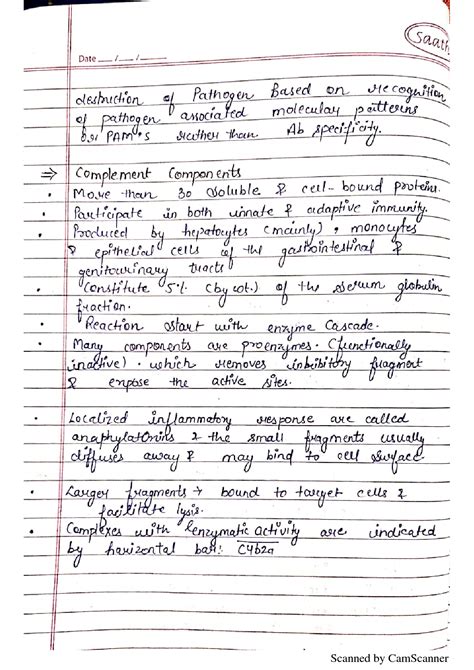 Saath
Date __/__/__
destruction of Pathogen Based on recognition
of pathogen associated molecular patterns
or PAM's rather than Ab specificity.
⇒ Complement Components
• More than 30 soluble & cell-bound proteins.
• Participate in both innate & adaptive immunity.
• Produced by hepatocytes (mainly), monocytes
& epithelial cells of the gastrointestinal &
genitourinary tracts
• Constitute 5% (by wt.) of the serum globulin
fraction.
• Reaction start with enzyme Cascade.
• Many components are proenzymes. (functionally
inactive). which removes inhibitory fragment
& expose the active sites.
• Localized inflammatory response are called
anaphylatoxins & the small fragments usually
diffuses away & may bind to cell surface.
• Larger fragments → bound to target cells &
facilitate lysis.
• Complexes with enzymatic activity are indicated
by horizontal bar: C4b2a
Scanned by CamScanner